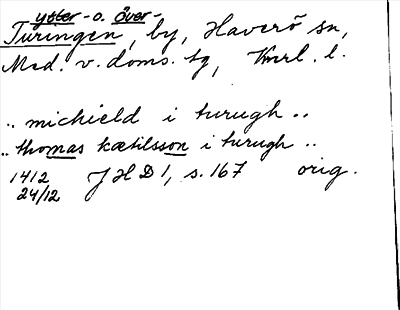 ytter- o. över-
Turingen, by, Haverö sn,
Med. v. doms. tg, Vnrl. l.
.. michield i turugh ..
.. thomas kætilsson i turugh ..
1412 JHD 1, s. 167 orig.
24/12